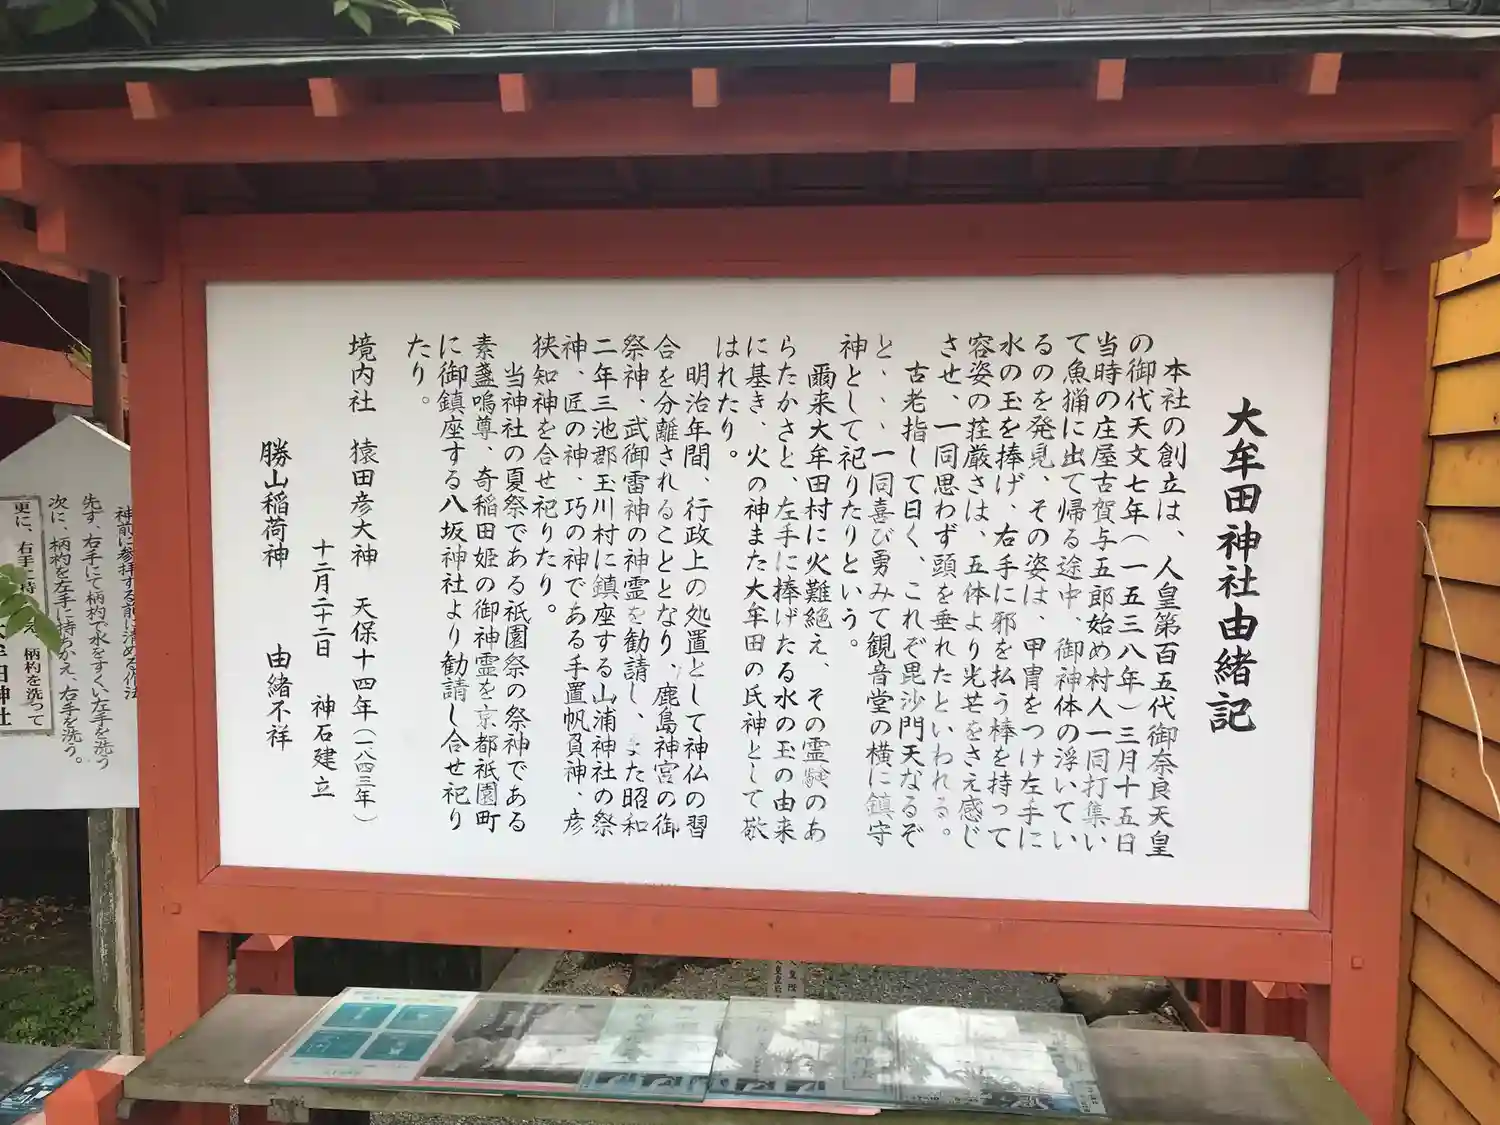 大牟田神社由緒記
本社の創立は、人皇第百五代御奈良天皇
の御代天文七年(一五三八年)三月十五日
当時の庄屋古賀与五郎始め村人一同打集い
て魚猟に出て帰る途中、御神体の浮いてい
るのを発見、その姿は、甲冑をつけ左手に
水の玉を捧げ、右手に邪を払う棒を持って
容姿の荘厳さは、五体より光芒をさえ感じ
させ、一同思わず頭を垂れたといわれる。
古老指して曰く、これぞ毘沙門天なるぞ
と、、、、一同喜び勇みて観音堂の横に鎮守
神として祀りたりという。
爾来大牟田村に火難絶え、その霊験のあ
らたかさと、左手に捧げたる水の玉の由来
に基き、火の神また大牟田の氏神として敬
はれたり。
明治年間、行政上の処置として神仏の習
合を分離されることとなり、鹿島神宮の御
祭神、武御雷神の神霊を勧請し、また昭和
二年三池郡玉川村に鎮座する山浦神社の祭
神、匠の神、巧の神である手置帆負神、彦
狭知神を合せ祀りたり。
当神社の夏祭である祇園祭の祭神である
素盞嗚尊、奇稲田姫の御神霊を京都祇園町
に御鎮座する八坂神社より勧請し合せ祀り
たり。
境内社 猿田彦大神 天保十四年(一八四三年)
十二月二十二日 神石建立
勝山稲荷神 由緒不祥
神前に参拝する前に清める作法
先ず、右手にて柄杓で水をすくい左手を洗う
次に、柄杓を左手に持ちかえ、右手を洗う。
更に、右手に持
え 柄杓を洗って
田神社